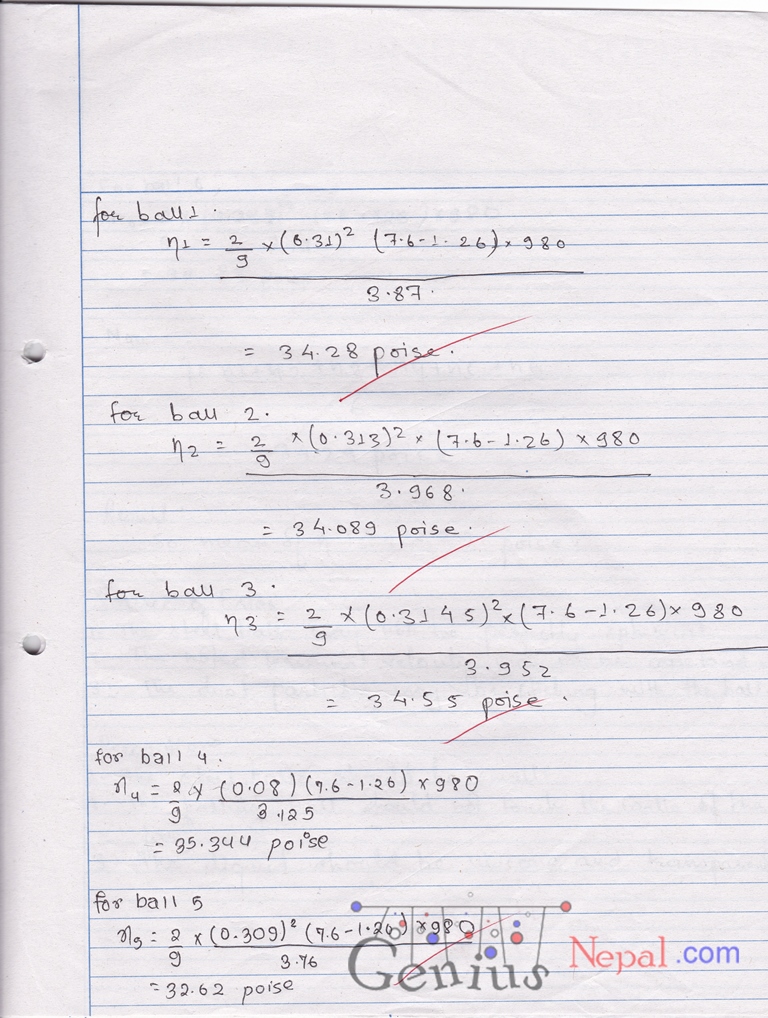 for ball 1.
η1 = 2/9 × (0.31)² (7.6-1.26) × 980
3.87.
= 34.28 poise.
for ball 2.
η2 = 2/9 × (0.313)² × (7.6-1.26) × 980
3.968.
= 34.089 poise.
for ball 3.
η3 = 2/9 × (0.3145)² × (7.6-1.26) × 980
3.952
= 34.55 poise.
for ball 4.
η4 = 2/9 × (0.08) (7.6-1.26) × 980
3.125
= 35.344 poise
for ball 5
η5 = 2/9 × (0.309)² (7.6-1.26) × 980
3.76
= 32.62 poise
Genius Nepal.com